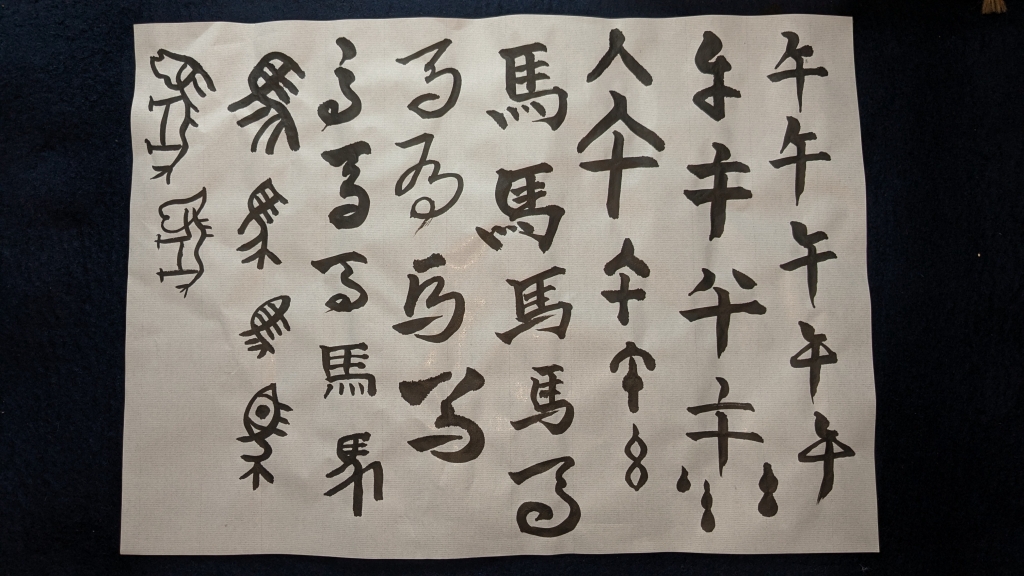 午午午午午
午午午午
午午午午
馬馬馬馬馬
馬馬馬馬
馬馬馬馬馬
馬馬馬馬
馬馬